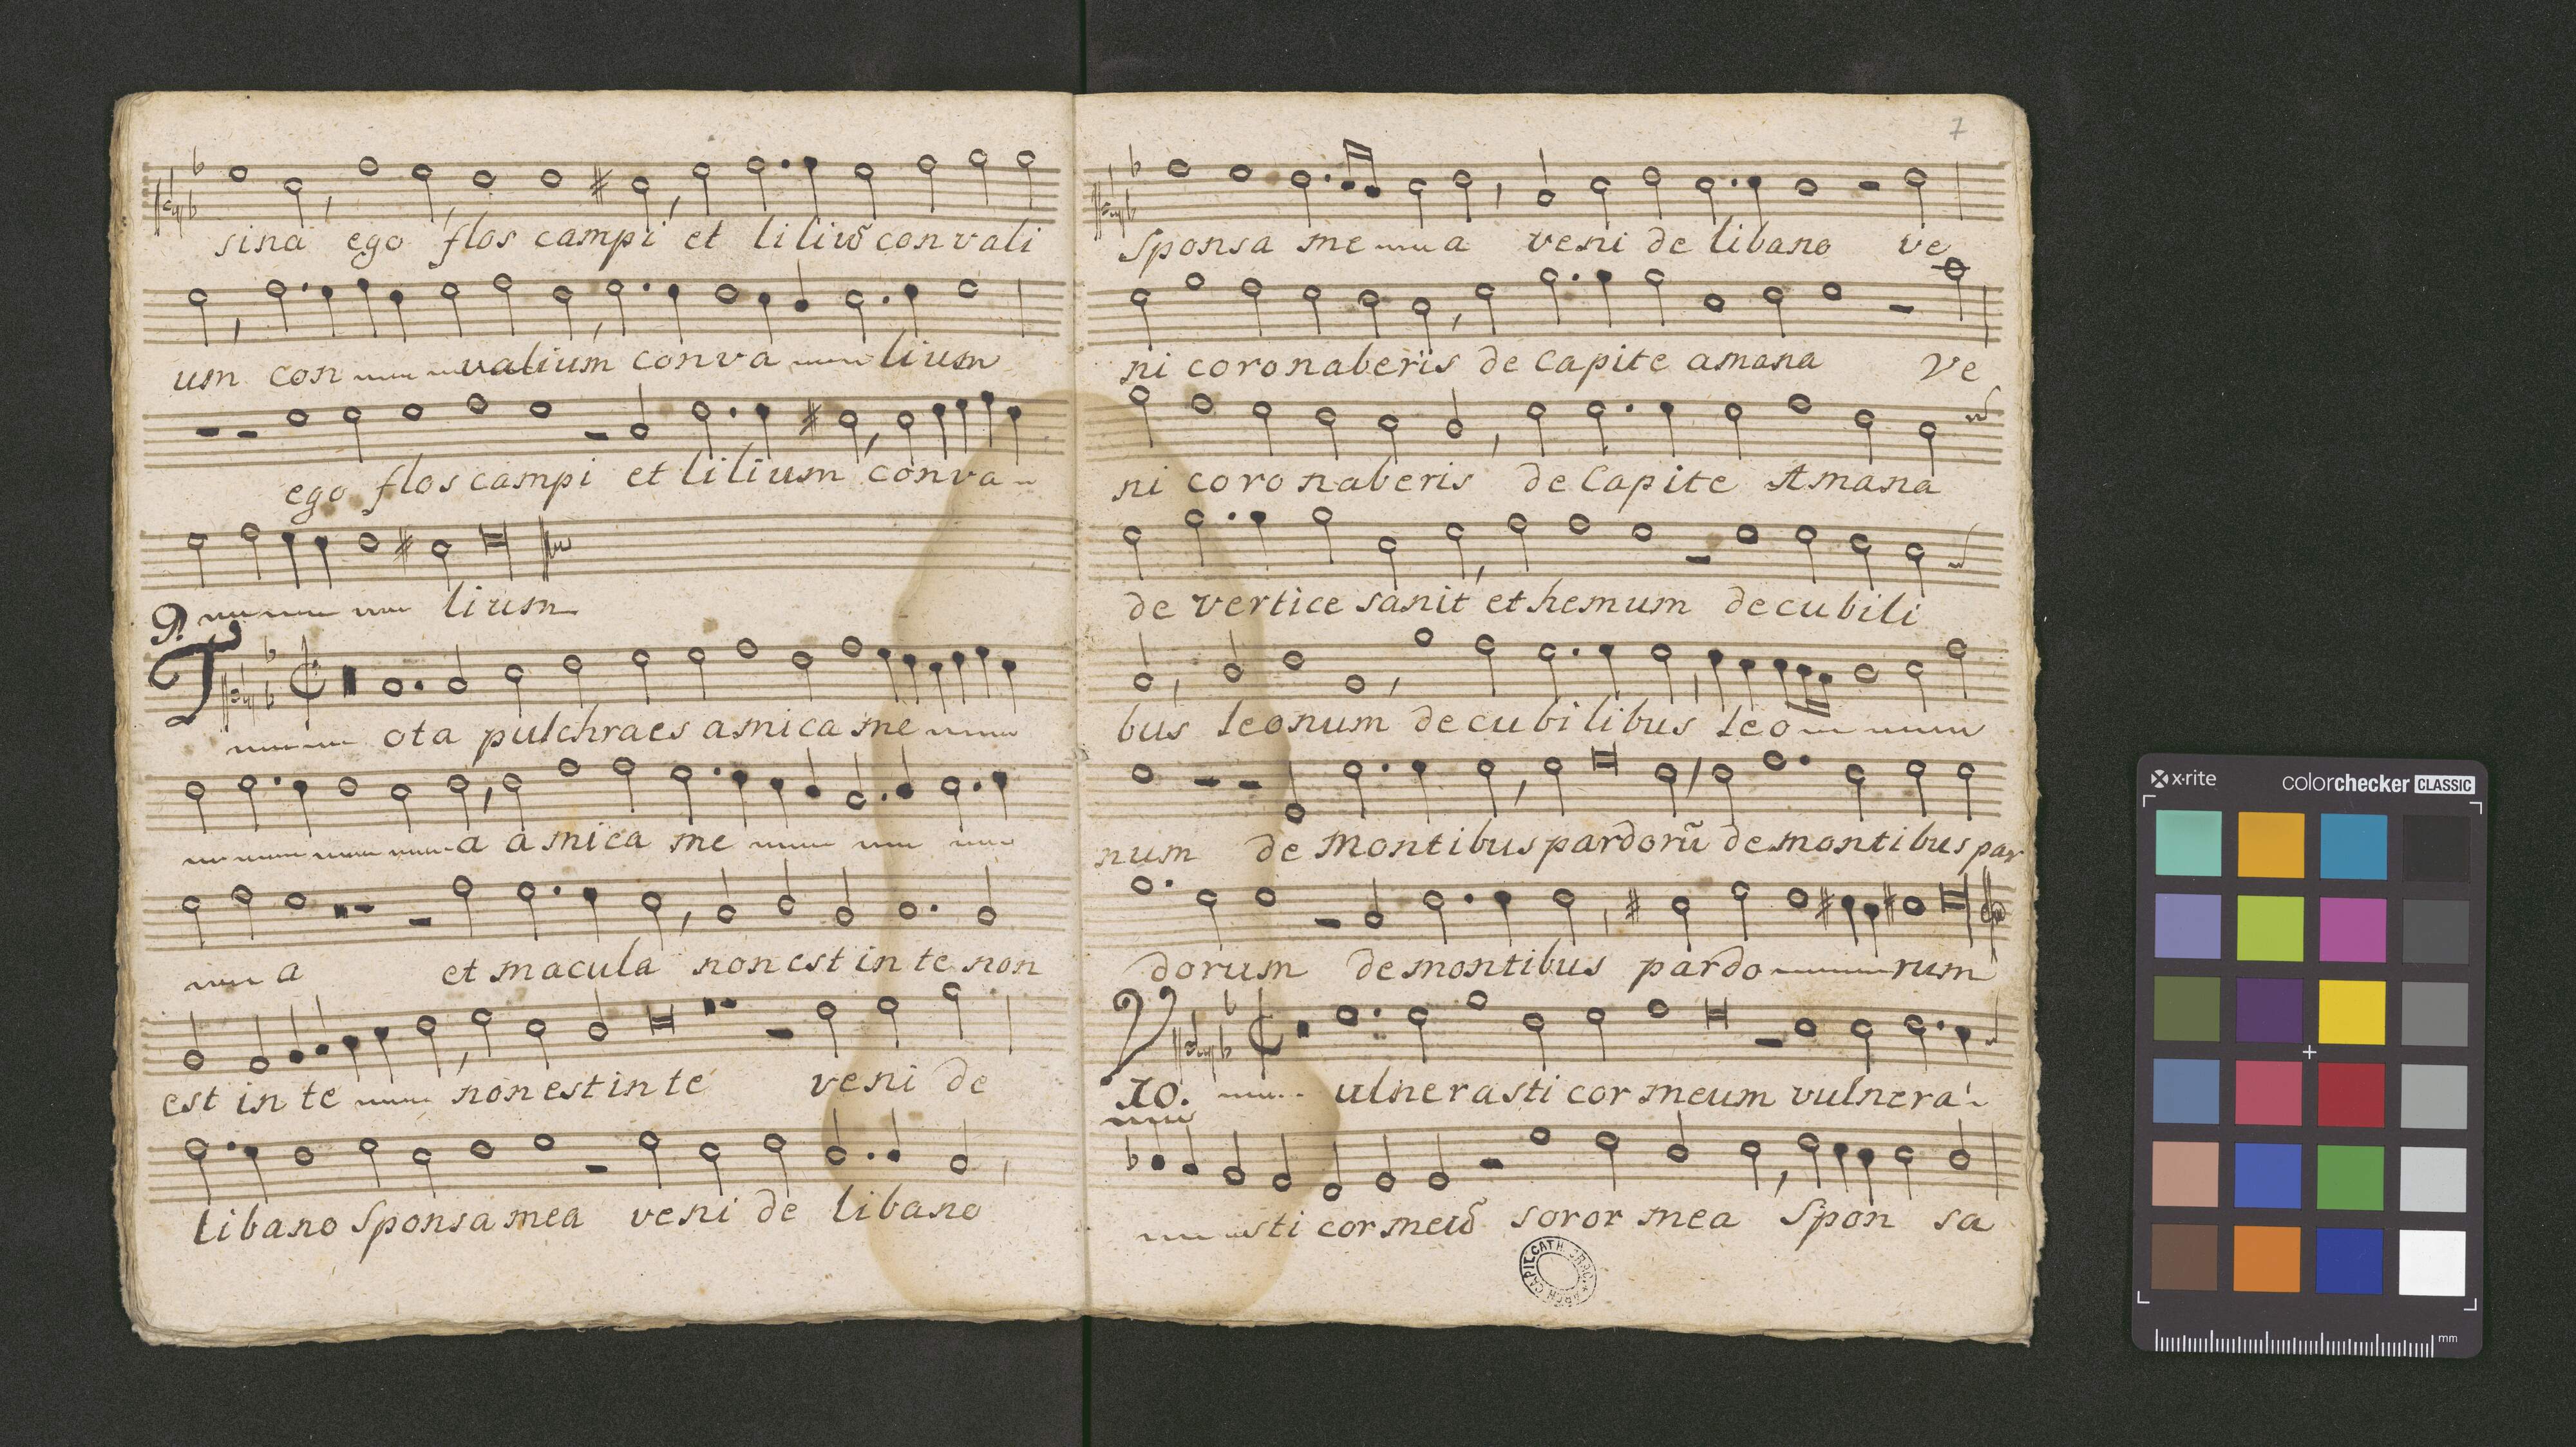 sina ego flos campi et liliũ convali
um con valium conva lium
ego flos campi et lilium conva
lium
9.
Tota pulchra es amica me
a amica me
a et macula non est in te non
est in te non est in te veni de
libano Sponsa mea veni de libano
7
Sponsa me a veni de libano ve
ni coronaberis de capite amana Ve
ni coronaberis de Capite Amana
de vertice sanit et hemum de cubili
bus leonum de cubilibus leo
num de montibus pardorũ de montibus par
dorum de montibus pardo rum
10. Vulnerasti cor meum vulnera
sti cor meũ soror mea Spon sa
x·rite
colorchecker CLASSIC
mm